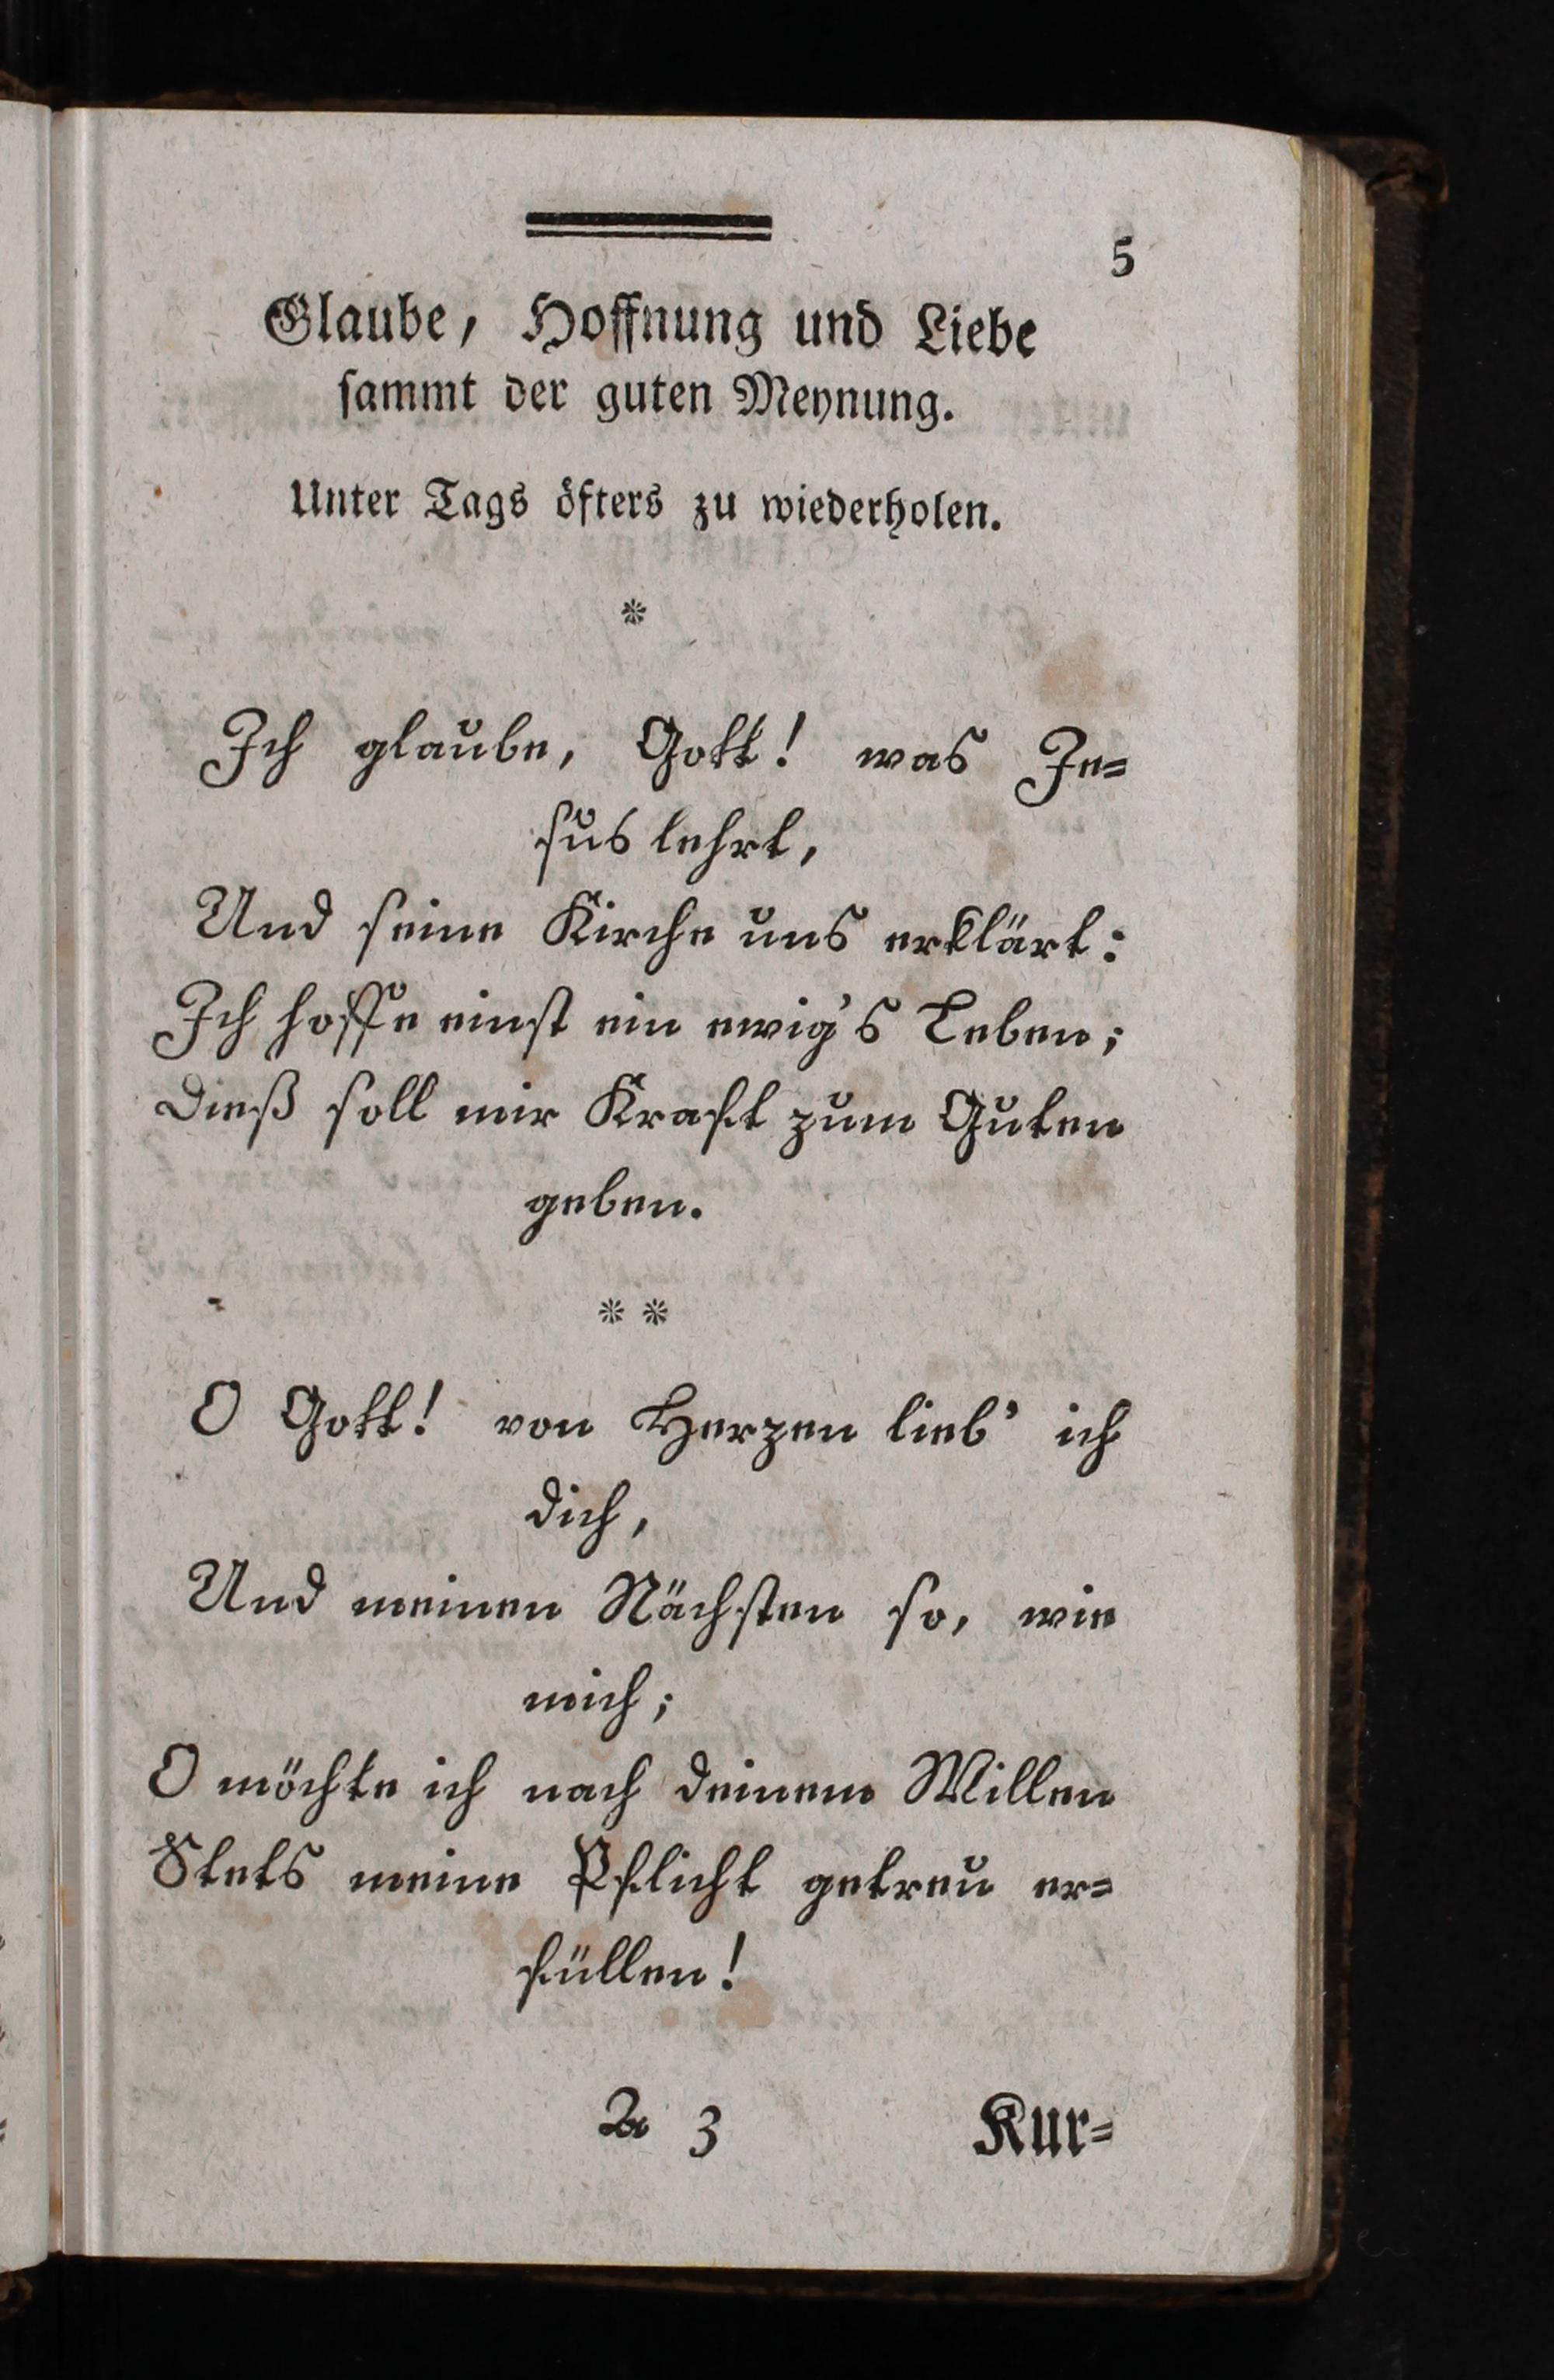 5
Glaube, Hoffnung und Liebe
sammt der guten Meynung.
Unter Tags öfters zu wiederholen.
*
Ich glaube, Gott! was Je=
sus lehrt,
Und seine Kirche uns erklärt:
Ich hoffe einst ein ewig's Leben;
Dieß soll mir Kraft zum Guten
geben.
* *
O Gott! von Herzen lieb' ich
dich,
Und meinen Nächsten so, wie
mich;
O möchte ich nach deinem Willen
Stets meine Pflicht getreu er=
füllen!
A 3 Kur=